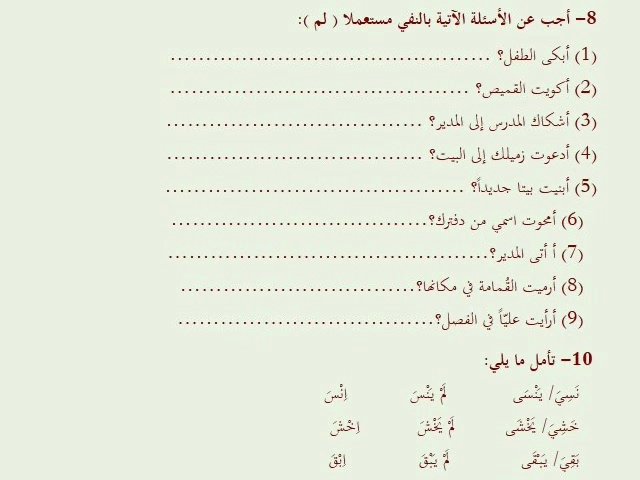 8– أجب عن الأسئلة الآتية بالنفي مستعملا ( لم ):
(1) أبكى الطفل؟ ............................................
(2) أكويت القميص؟ .........................................
(3) أشكاك المدرس إلى المدير؟ ...................................
(4) أدعوت زميلك إلى البيت؟ ...................................
(5) أبنيت بيتا جديداً؟ .........................................
(6) أمحوت اسمي من دفترك؟...................................
(7) أ أتى المدير؟............................................
(8) أرميت القُمامة في مكانها؟................................
(9) أرأيت عليّاً في الفصل؟...................................
10– تأمل ما يلي:
نَسِيَ/ يَنْسَى لَمْ يَنْسَ اِنْسَ
خَشِيَ/ يَخْشَى لَمْ يَخْشَ اِخْشَ
بَقِيَ/ يَبْقَى لَمْ يَبْقَ اِبْقَ